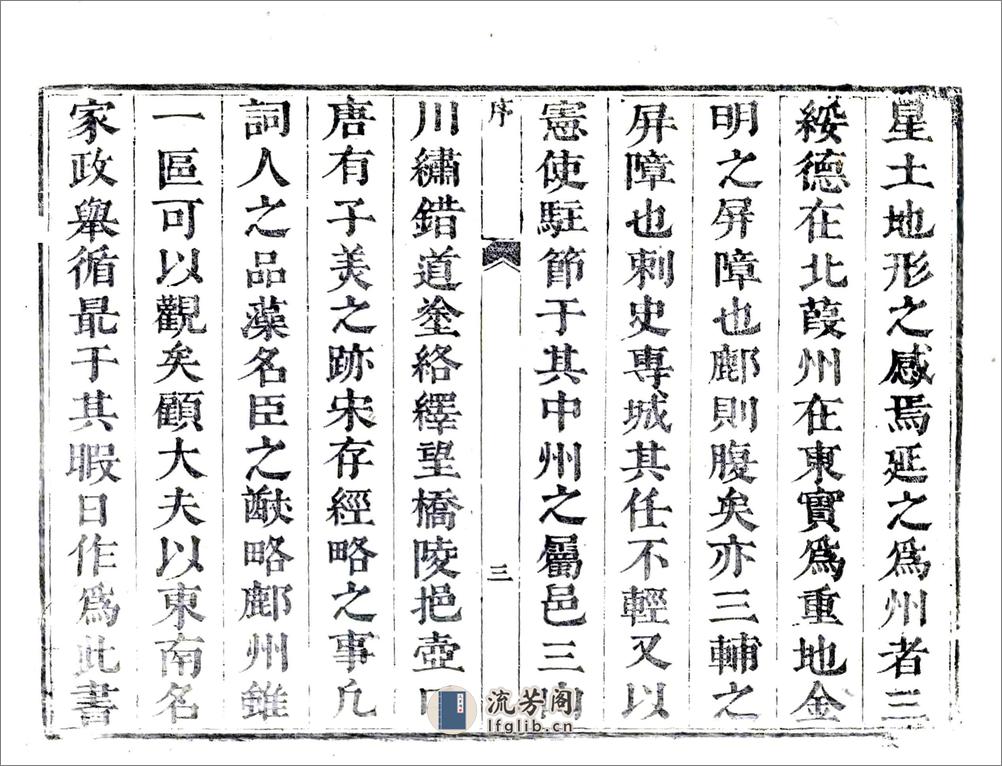 星土地形之感焉延之爲州者三
綏德在北葭州在東實爲重地金
明之屏障也鄜則腹矣亦三輔之
屏障也刺史專城其任不輕又以
憲使駐節于其中州之屬邑三
序
三
川繡錯道塗絡繹望橋陵挹壺口
唐有子美之跡宋存經略之事凡
詞人之品藻名臣之猷略鄜州雖
一區可以觀矣顧大夫以東南名
家政舉循最于其暇日作爲此書
流芳阁
lfglib.cn